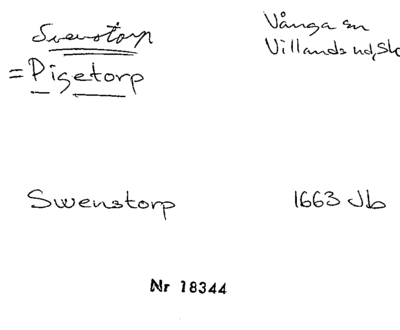 Svenstorp
Vånga sn
= Pigetorp
Villands hd, Sk
Swenstorp
1663 Jb
Nr 18344